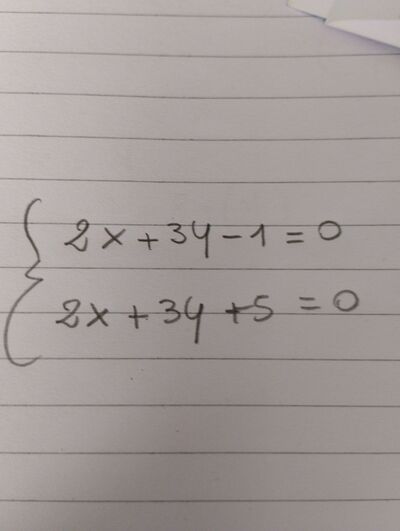 2x+3y-1=0
2x+3y+5=0